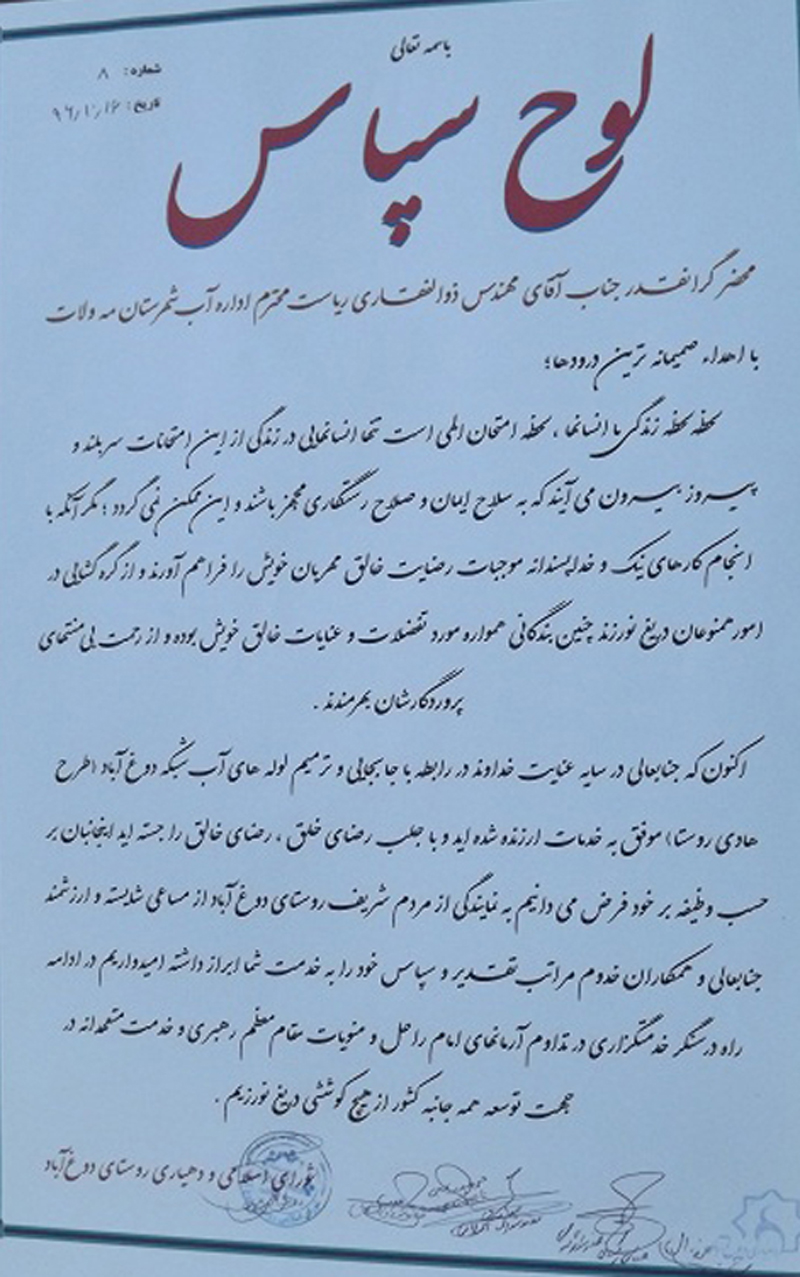 باسمه تعالی
شماره: ۸
تاریخ: ۹۶/۱/۱۶
لوح سپاس
محضر گرانقدر جناب آقای مهندس ذوالفقاری ریاست محترم اداره آب شهرستان مه ولات
با اهداء صمیمانه ترین درودها؛
لحظه لحظه زندگی ما انسانها ، لحظه امتحان الهی است تنها انسانهایی در زندگی از این امتحانات سربلند و
پیروز بیرون می آیند که به سلاح ایمان و صلاح رستگاری مجهز باشند و این ممکن نمی گردد ؛ مگر آنکه با
انجام کارهای نیک و خداپسندانه موجبات رضایت خالق مهربان خویش را فراهم آورند و از گره گشایی در
امور همنوعان دریغ نورزند چنین بندگانی همواره مورد تفضلات و عنایات خالق خویش بوده و از رحمت بی منتهای
پروردگارشان بهرمندند .
اکنون که جنابعالی در سایه عنایت خداوند در رابطه با جابجایی و ترمیم لوله های آب شبکه دوغ آباد (طرح
هادی روستا) موفق به خدمات ارزنده شده اید و با جلب رضای خلق ، رضای خالق را جسته اید اینجانبان بر
حسب وظیفه بر خود فرض می دانیم به نمایندگی از مردم شریف روستای دوغ آباد از مساعی شایسته و ارزشمند
جنابعالی و همکاران خدوم مراتب تقدیر و سپاس خود را به خدمت شما ابراز داشته امیدواریم در ادامه
راه در سنگر خدمتگزاری در تداوم آرمانهای امام راحل و منویات مقام معظم رهبری و خدمت متعهدانه در
جهت توسعه همه جانبه کشور از هیچ کوششی دریغ نورزیم .
شورای اسلامی و دهیاری روستای دوغ آباد